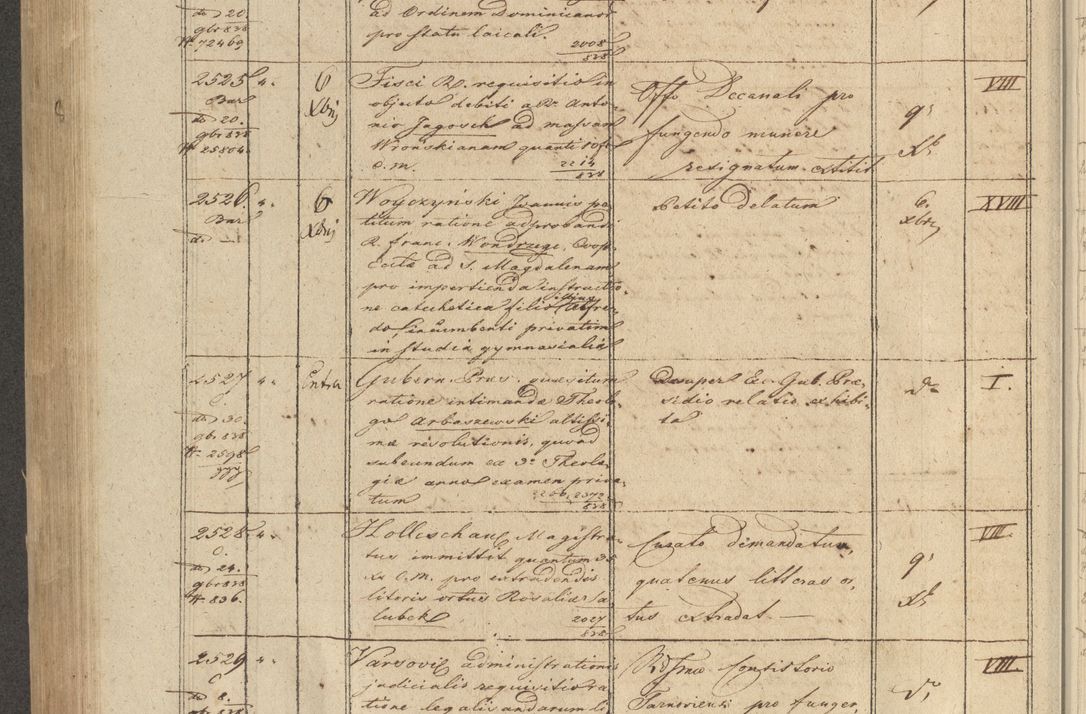 do 20.
gbr 838
N. 72469
ad Ordinem Dominicanor
pro statu laicali.
2008
838
2525 4.
Bnar
do 20.
gbr 838
N 25804.
6
Xbrj
Fisci R. requisitio in
objecto debiti a R. Anto-
nio Jagosch ad massam
Wrońskianam quanti 10 f
C. M.
2214
838
Offo Decanali pro
fungendo munere
resignatum extitit
9
Xb
VIII
2526. 4.
Bnar
do
6
Xbrj
Woyczyński Joannis pe-
titum ratione adprobandi
R. Franc. Wondrzege, Coop.
Eccle ad S. Magdalenam
pro impertienda instructio-
ne catechetica filio Alfre-
do, incumbenti privatim
in studia gymnasialia
Petito delatum
6.
Xbrj
XVIII
2527 4.
do 30.
gbr 838
N. 2598
Extra
Gubern. Praes. quaesitum
ratione intimandae Theolo-
go Arbaszewski altissi-
mae resolutionis, quoad
subeundum ex 3o Theolo-
giae anno examen priva-
tum
2206, 2372
838
Desuper Exc. Gub. Prae-
sidio relatio exhibi-
ta
do
I.
2528. 4.
do 24.
gbr 838
N. 836.
Holleschau Magistra-
tus immittit quantum 35
xr C. M. pro extradendis
literis ortus Rosaliae Sa-
lubek
2027
838
Curato demandatum,
quatenus litteras or-
tus extradat —
9
Xb
VIII
2529 4.
do 8.
gbr 838
Varsovie administrationis
judicialis requisitio ra-
tione legalisandarum li-
Rdssmo Consistorio
Tarnoviensi pro funger.
do
VIII